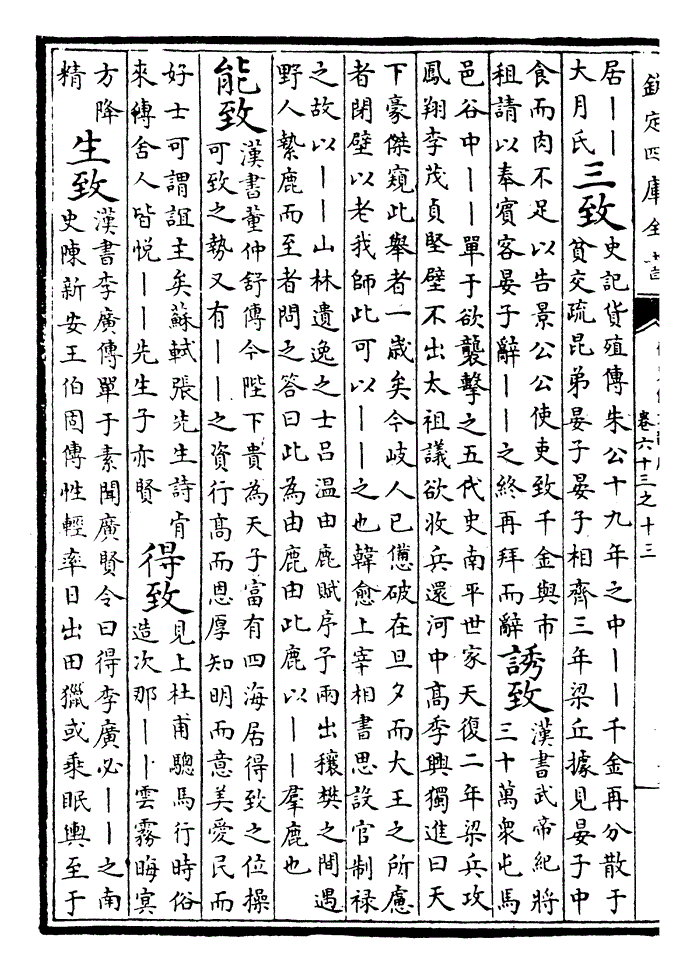 欽定四庫全書
卷六十三之十三
居——
大月氏
三致
史記貨殖傳朱公十九年之中——千金再分散于
貧交疏昆弟晏子晏子相齊三年梁丘據見晏子中
食而肉不足以告景公公使吏致千金與市
租請以奉賓客晏子辭——之終再拜而辭
誘致
漢書武帝紀將
三十萬衆屯馬
邑谷中——單于欲襲擊之五代史南平世家天復二年梁兵攻
鳳翔李茂貞堅壁不出太祖議欲收兵還河中高季興獨進曰天
下豪傑窺此舉者一歲矣今岐人已憊破在旦夕而大王之所慮
者閉壁以老我師此可以——之也韓愈上宰相書思設官制禄
之故以——山林遺逸之士吕温由鹿賦序子兩出穰樊之間遇
野人縶鹿而至者問之答曰此為由鹿由此鹿以——羣鹿也
能致
漢書董仲舒傳今陛下貴為天子富有四海居得致之位操
可致之勢又有——之資行高而恩厚知明而意美愛民而
好士可謂誼主矣蘇軾張先生詩肯
來縳舍人皆悦——先生子亦賢
得致
見上杜甫驄馬行時俗
造次那——雲霧晦冥
方降
精
生致
漢書李廣傳單于素聞廣賢令曰得李廣必——之南
史陳新安王伯固傳性輕率日出田獵或乘眠輿至于